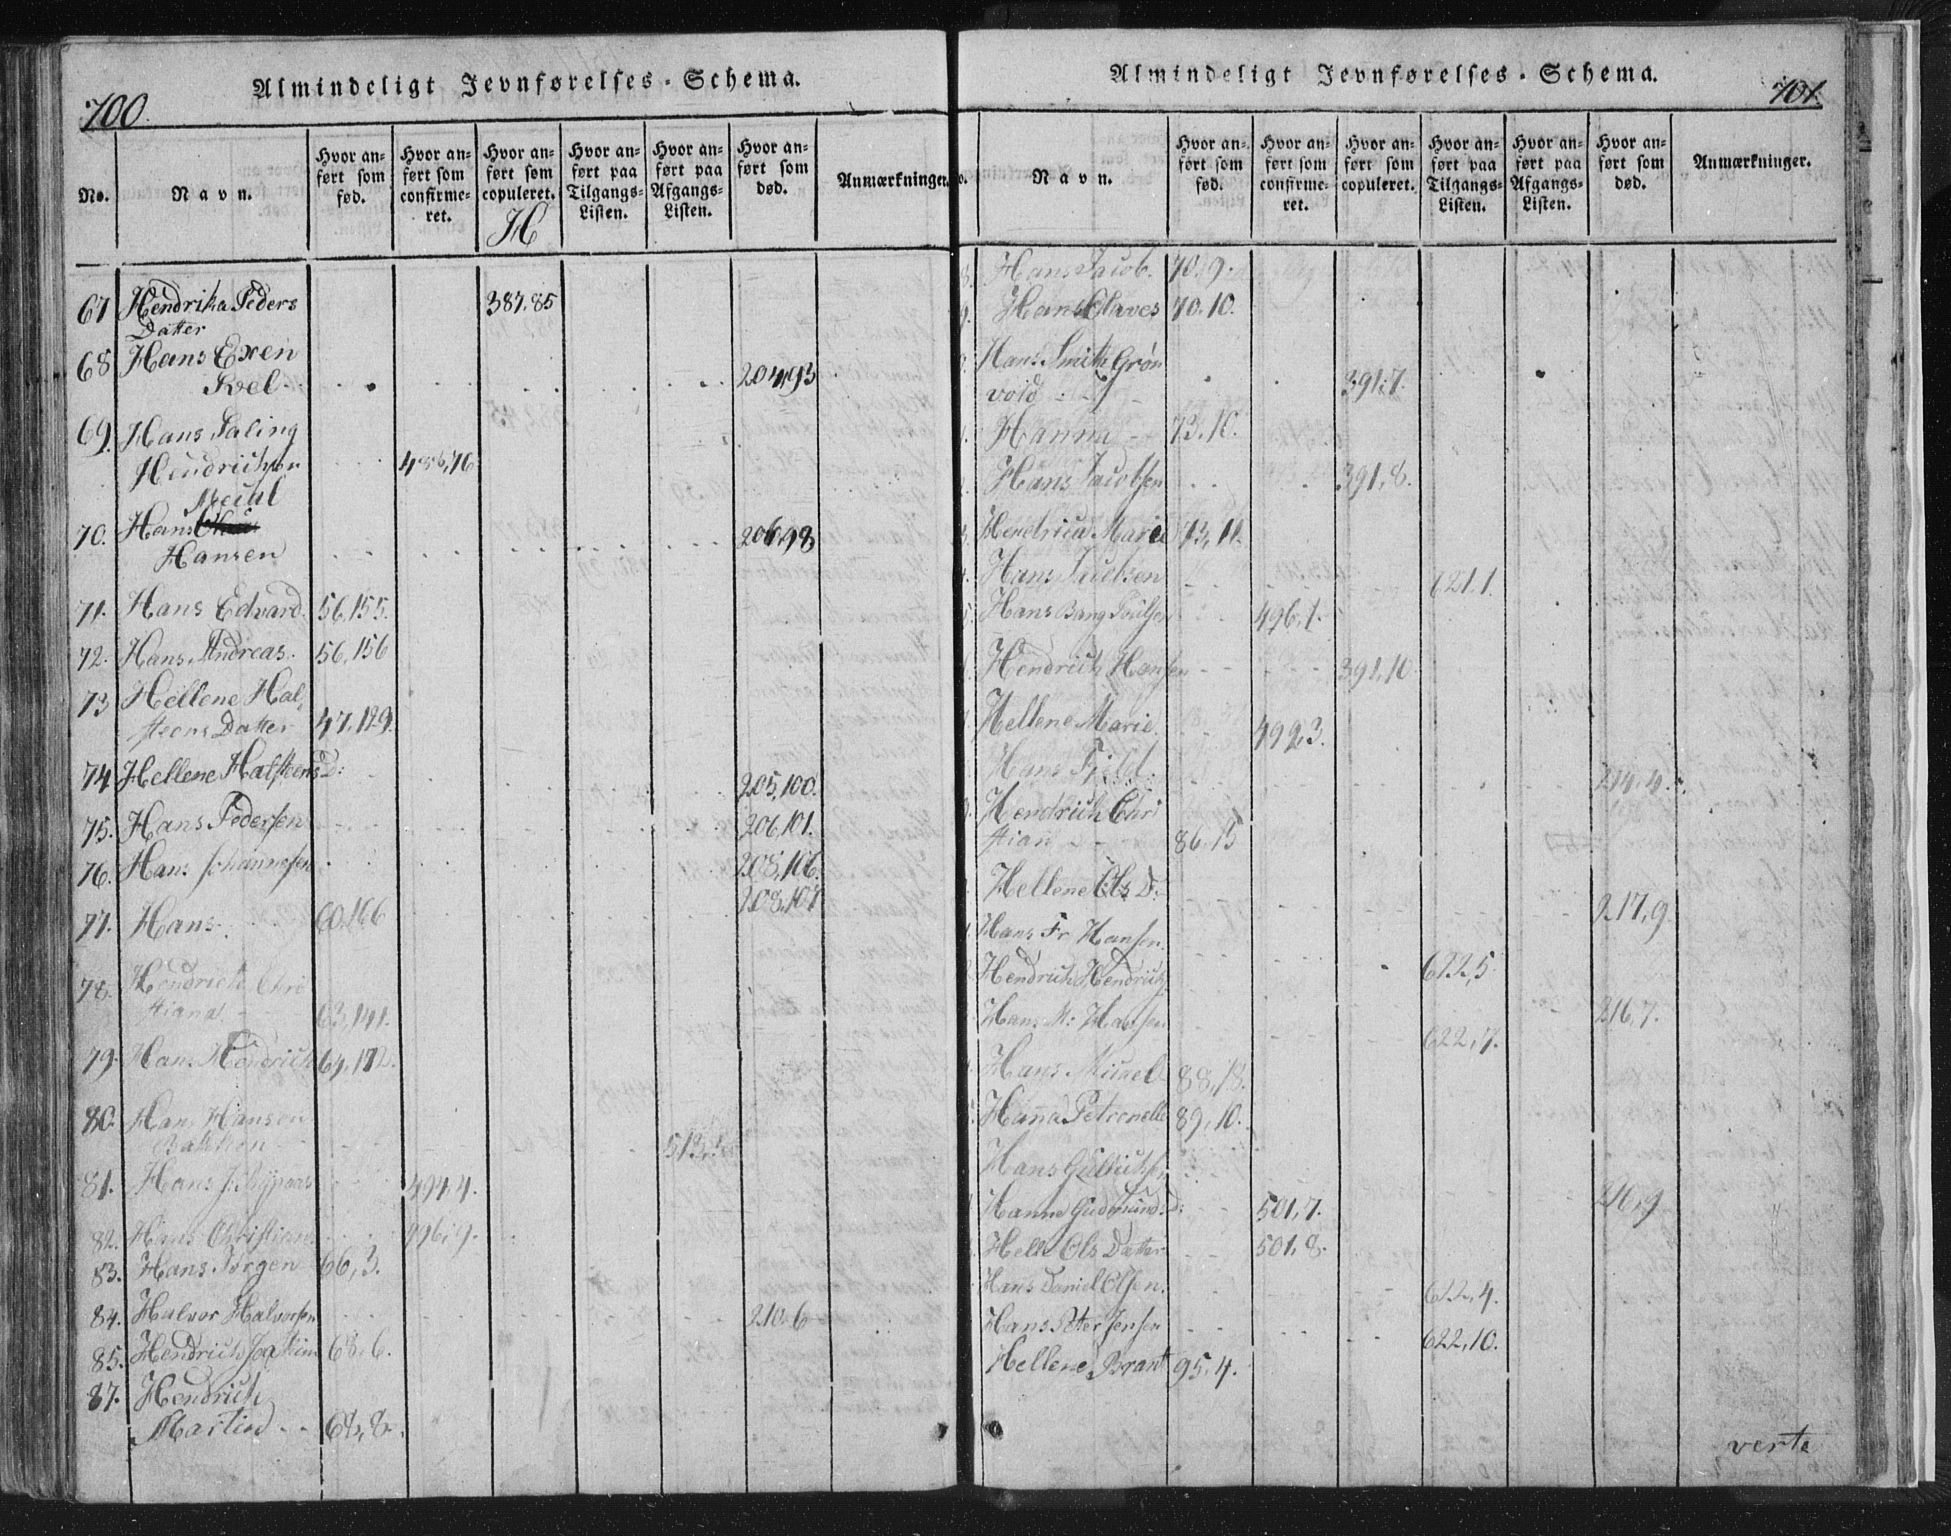 700.
Almindeligt Jevnførelses-Schema.
No.
Navn.
Hvor anført som fød.
Hvor anført som confirmeret.
Hvor anført som copuleret.
Hvor anført paa Tilgangs-Listen.
Hvor anført paa Afgangs-Listen.
Hvor anført som død.
Anmærkninger.
H
67 Hendrika Peders 387,85
Datter
68 Hans Exen
Kvel 204,93
69. Hans Saling
Hendrichsen 486,76
Neial
70. Hans
Hansen 206,98
71. Hans Edvard. 56,155.
72. Hans Andreas. 56,156
73 Hellene Hal
steens Datter 47,129.
74 Hellene Halsteens D: 205,100.
75. Hans Pedersen 206,101.
76. Hans Johannesen 208,106.
208,107
77. Hans 60,166
78. Hendrich Chri
stiana 63,141.
79. Hans Hendrich 64,172.
80. Hans Hansen
Bakken 513,
81. Hans J. 494,4.
82. Hans Christian 496,9.
83. Hans Jørgen 66,3.
84. Halvor Halvorsen 210,6
85. Hendrich Joakim 68,6.
87. Hendrich
Martin 68,8.
701.
Almindeligt Jevnførelses-Schema.
No.
Navn.
Hvor anført som fød.
Hvor anført som confirmeret.
Hvor anført som copuleret.
Hvor anført paa Tilgangs-Listen.
Hvor anført paa Afgangs-Listen.
Hvor anført som død.
Anmærkninger.
Hans Jacob. 70,9.
Hans Claves 70,10.
Hans Smith Grøn
vold 391,7.
Hanna 73,10.
Hans Jacobsen 391,8.
Hendrica Marie 73,11.
Hans Jacobsen 621,1.
Hans Bang Poulsen 496,1.
Hendrich Hansen 391,10
Hellene Marie 499,3.
Hans Field 214,4.
Hendrich Chri
stian 86,15
Hellene Ols D: 217,9.
Hans Fr Hansen. 622,5
Hendrich Hendrichs 216,7.
Hans M: Hansen 622,7.
Hans Micael 88,18.
Hanna Petronelle 89,10.
Hans 216,9
Hanne Gudmunds D: 501,7.
Helle Ols Datter 501,8.
Hans Daniel Olsen. 622,4.
Hans Peter Jensen 622,10.
Hellene Brant 95,4.
verte